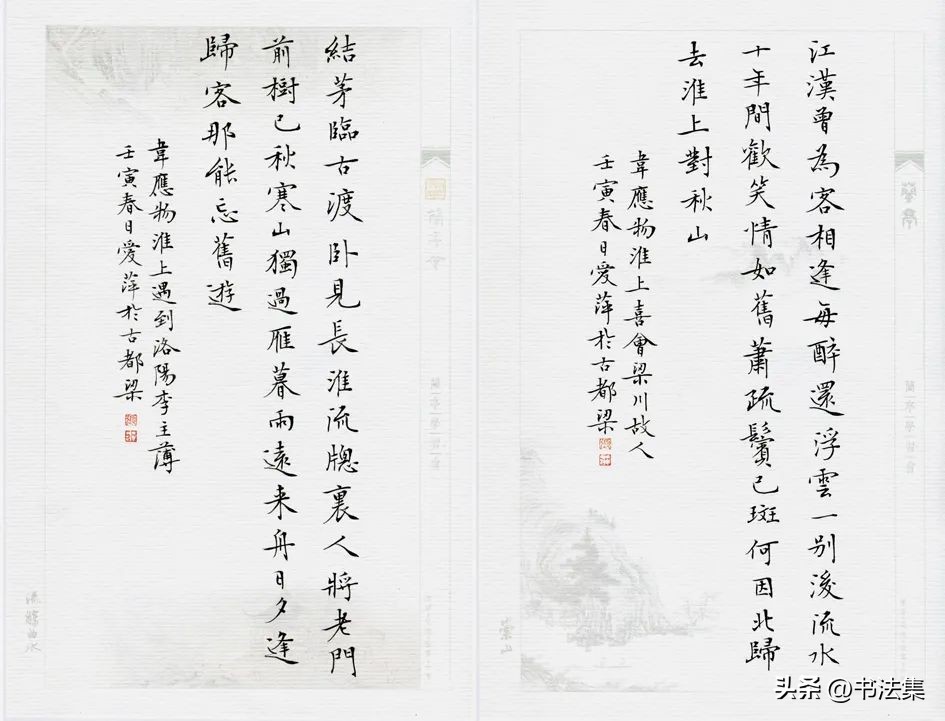 蘭亭
江漢曾為客相逢每醉還浮雲一别後流水
十年間歡笑情如舊蕭疏鬢已斑何因北歸
去淮上對秋山
韋應物淮上喜會梁川故人
壬寅春日愛萍於古都梁
崇山
結茅臨古渡卧見長淮流牕裏人將老門
前樹已秋寒山獨過雁暮雨遠来舟日夕逢
歸客那能忘舊遊
韋應物淮上遇到洛陽李主薄
壬寅春日愛萍於古都梁
流觴曲水
头条 @书法集